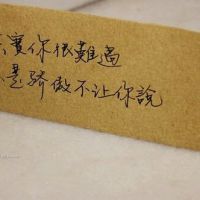 其實你很難過
是驕傲不让你說